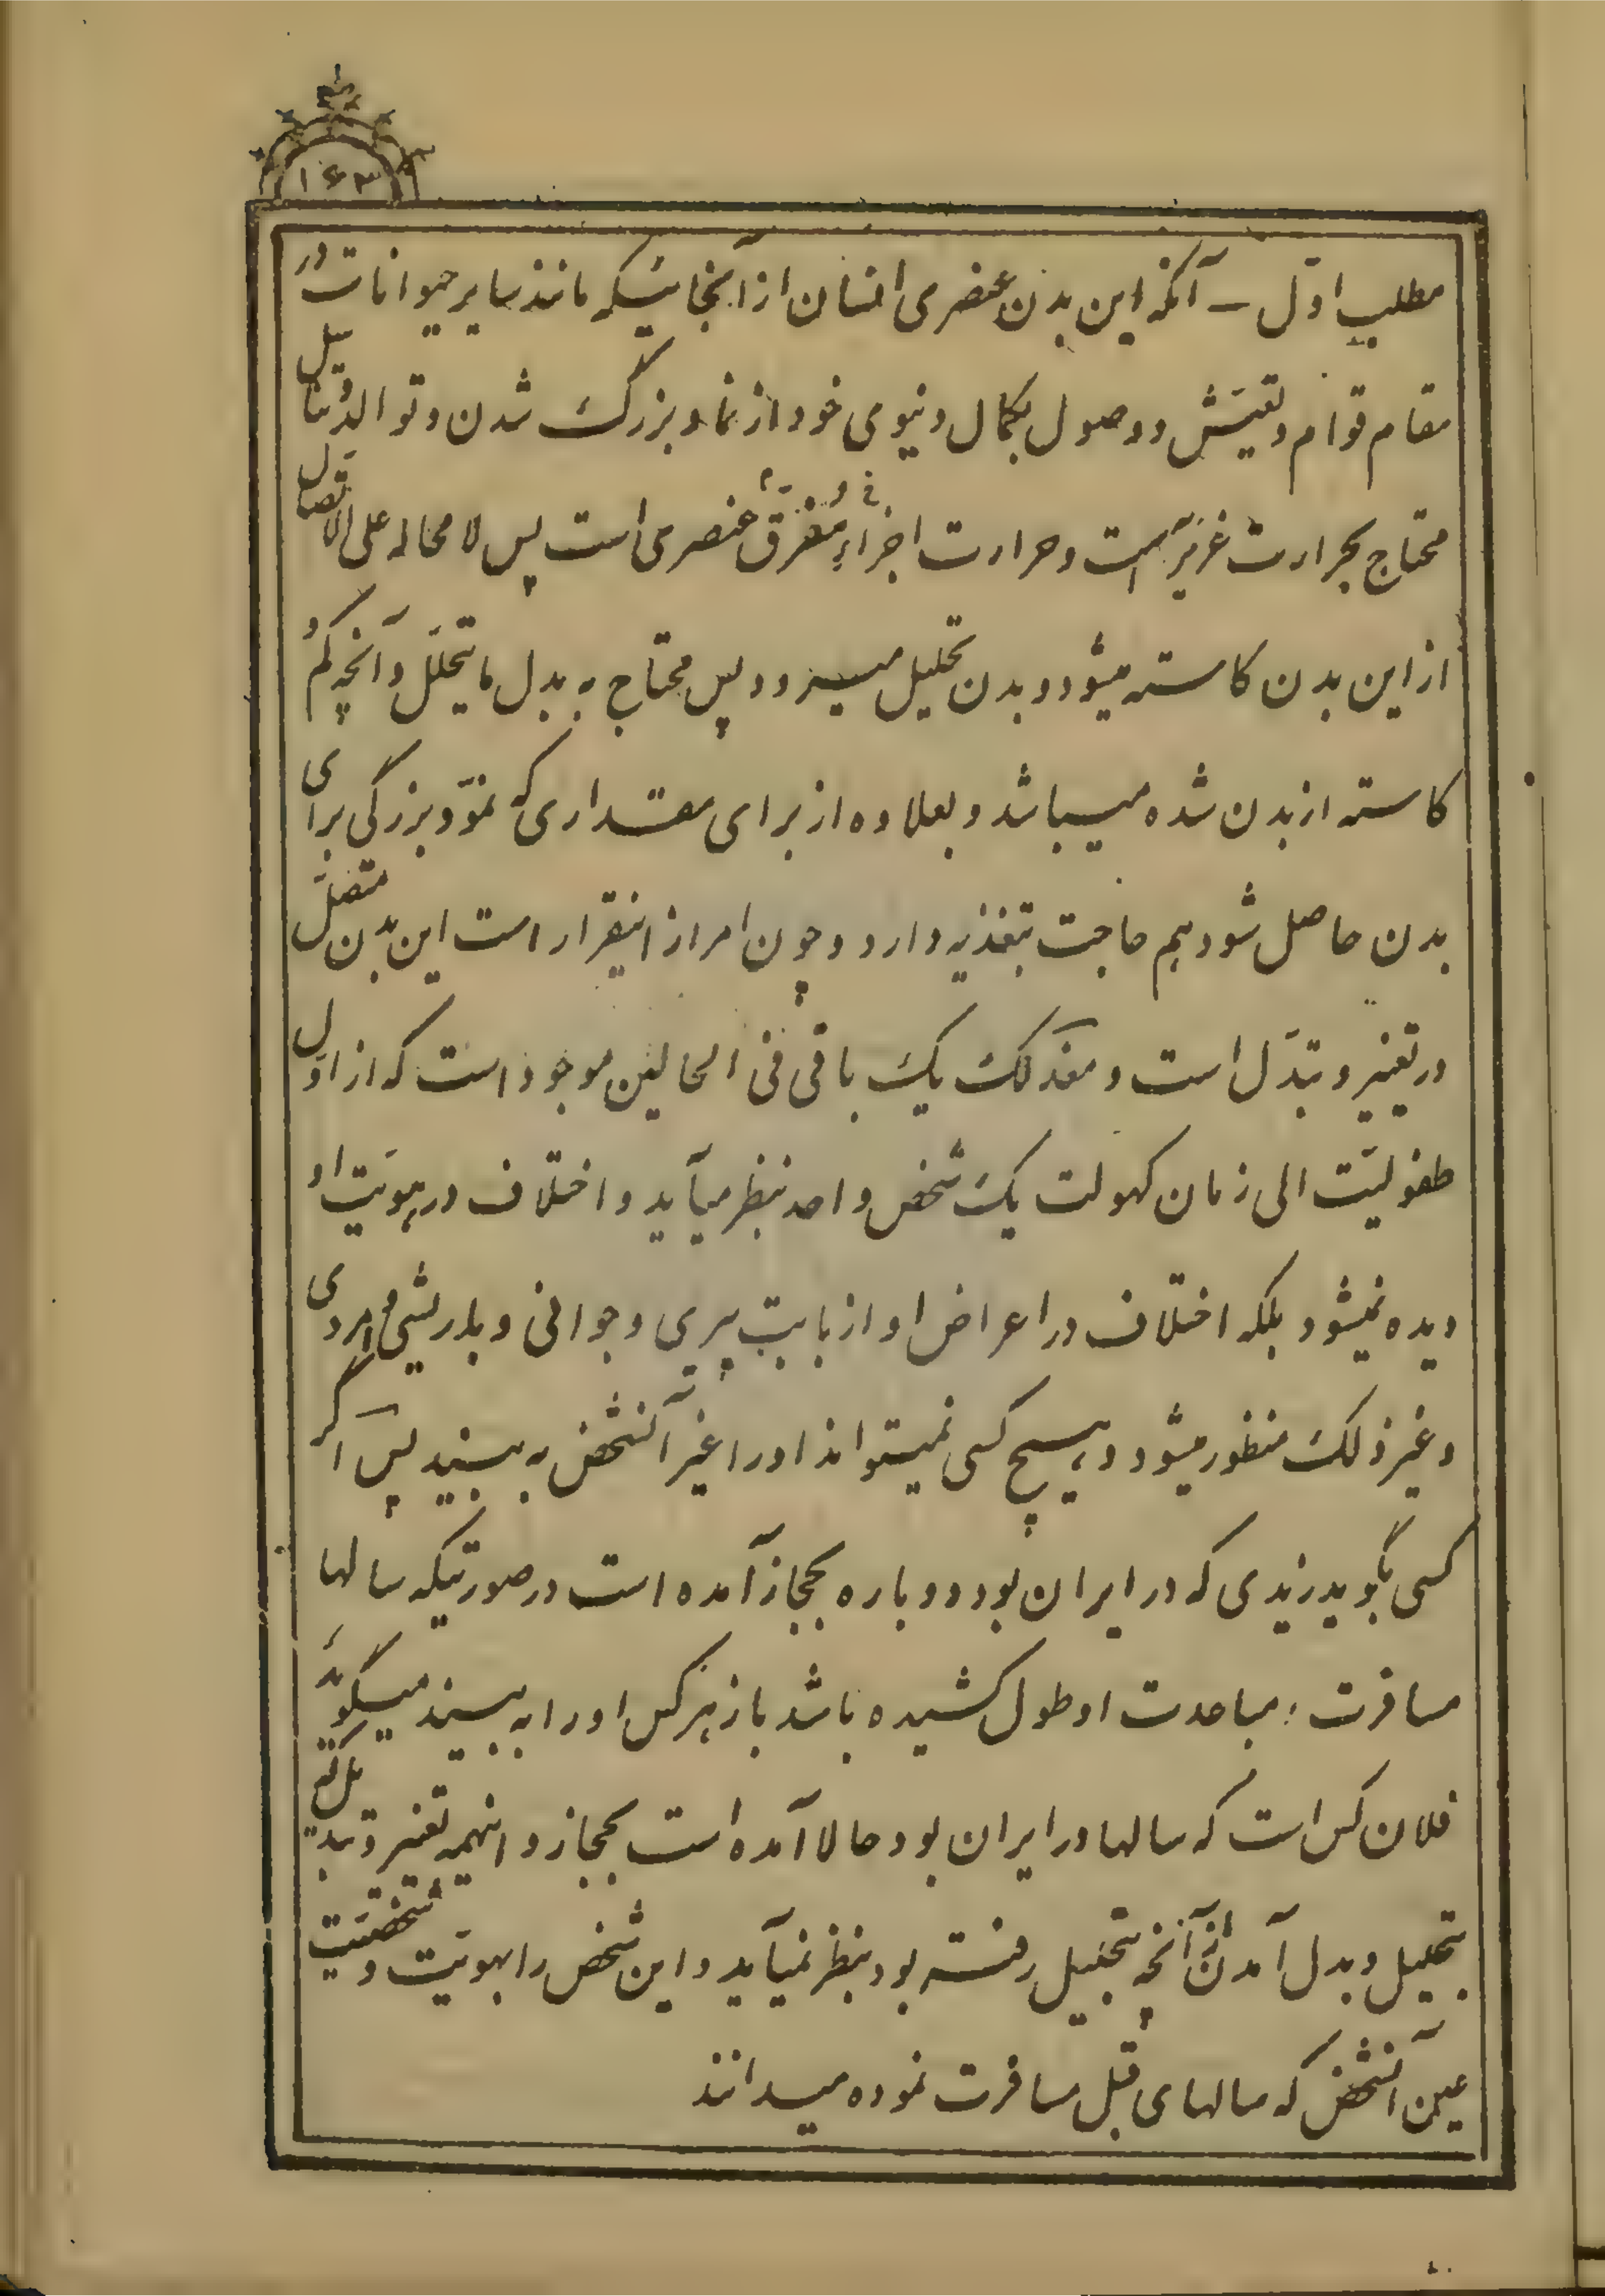 ۱۶۳
مطلب اوّل ـ آنکه این بدن عنصری انسان از آنجائیکه مانند سایر حیوانات در
مقام قوام و تعیّش و وصول بکمال دنیوی خود از نما و بزرگ شدن و توالد و تناسل
محتاج بحرارت غریزیّه است و حرارت اجزاء مفرّق عنصری است پس لا محاله علی الاتصال
از این بدن کاسته میشود و بدن تحلیل میرود پس محتاج به بدل ما یتحلّل و آنچه کم و
کاسته از بدن شده میباشد و بعلاوه از برای مقداری که نموّ و بزرگی برای
بدن حاصل شود هم حاجت بتغذیه دارد و چون امر از اینقرار است این بدن متصل
در تغییر و تبدّل است و معذلک یک باقی فی الحالین موجود است که از اوّل
طفولیّت الی زمان کهولت یک شخص واحد بنظر میآید و اختلاف در هویّت او
دیده نمیشود بلکه اختلاف در اعراض او از بابت پیری و جوانی و باریشی و امردی
و غیر ذلک منظور میشود و هیچ کسی نمیتواند او را غیر آنشخص به بیند پس اگر
کسی بگوید زیدی که در ایران بود دوباره بحجاز آمده است در صورتیکه سالها
مسافرت و مباعدت او طول کشیده باشد باز هر کس او را به بیند میگوید
فلان کس است که سالها در ایران بود حالا آمده است بحجاز و اینهمه تغییر و تبدیل
بتحلیل و بدل آمدن از آنچه بتحلیل رفته بود بنظر نمیآید و این شخص را بهویّت و شخصیّت
عین آنشخص که سالهای قبل مسافرت نموده میدانند